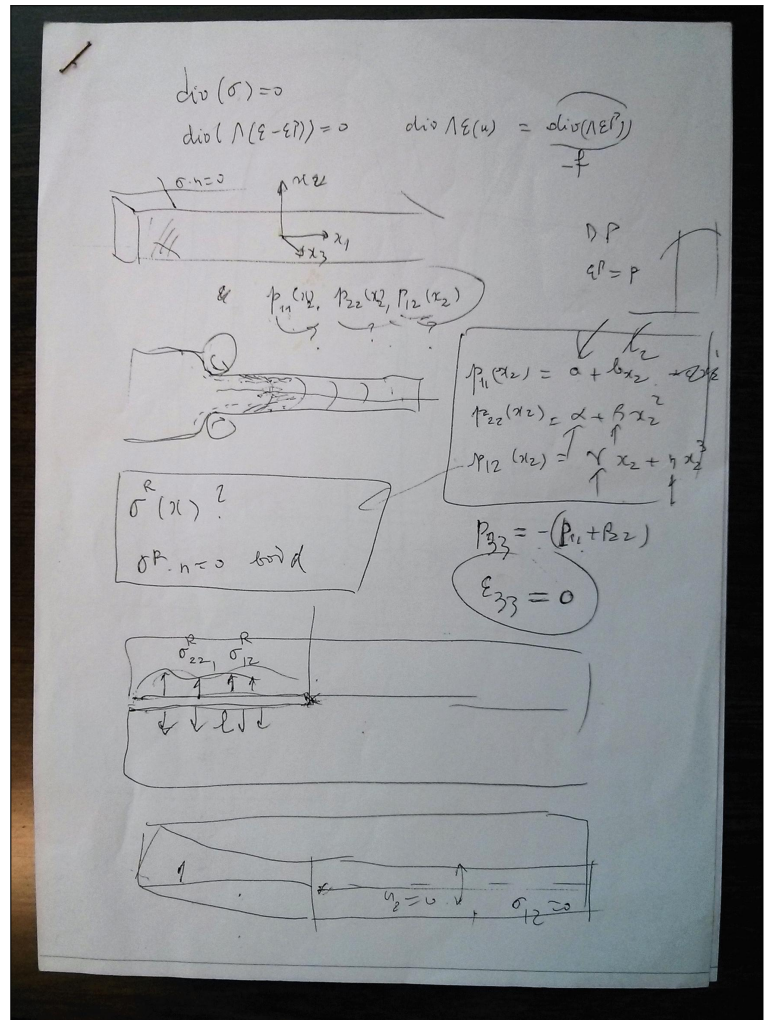 div(σ)=0
div(Λ(ε-εᵖ))=0 div Λε(u) = div(Λεᵖ))
-f
σ·n=0 x₂
x₁
x₃
DP
εᵖ=p
& p₁₁(x₂), p₂₂(x₂), p₁₂(x₂)
? ? ?
p₁₁(x₂) = a + bx₂
p₂₂(x₂) = α + βx₂²
p₁₂(x₂) = γx₂ + ηx₂³
σᴿ(x) ?
σᴿ·n=0 bord
p₃₃ = -(p₁₁+p₂₂)
ε₃₃ = 0
σᴿ₂₂, σᴿ₁₂
l
u₂=0 σ₁₂=0